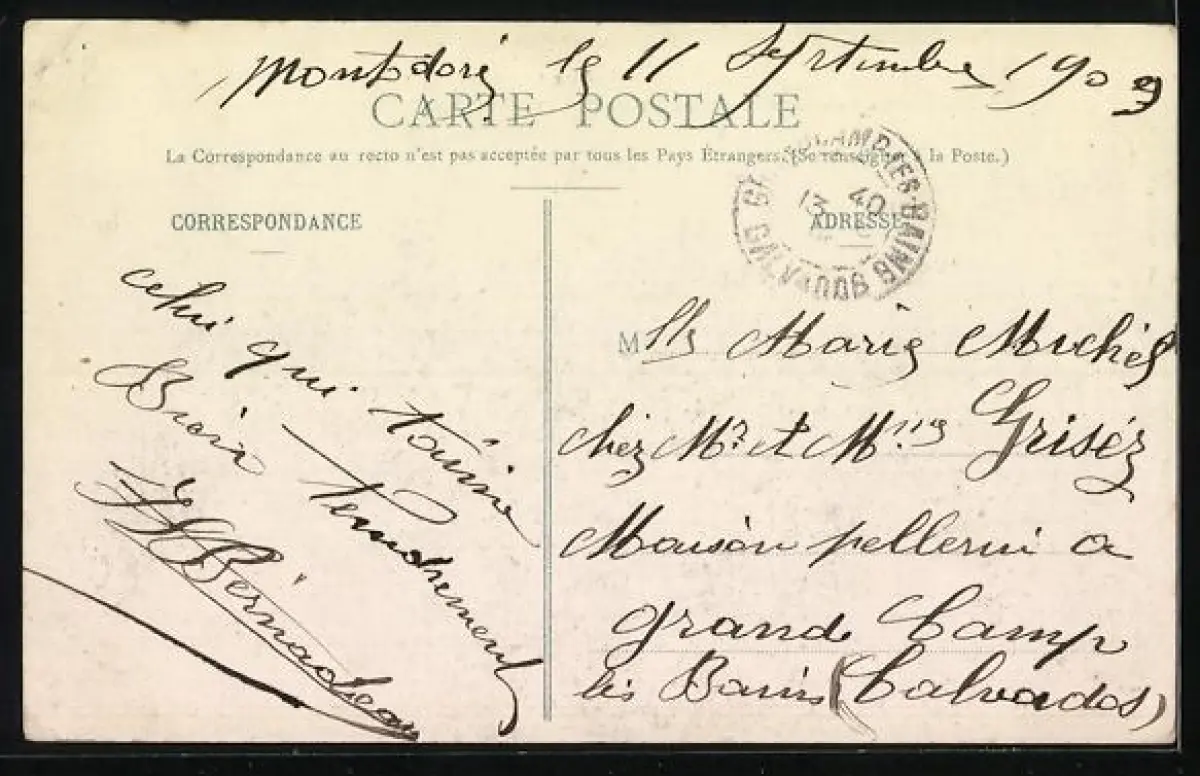 Montdoré le 11 Septembre 1909
CARTE POSTALE
La Correspondance au recto n'est pas acceptée par tous les Pays Étrangers. (Se renseigner à la Poste.)
CORRESPONDANCE
ADRESSE
GRANDCAMP-LES-BAINS
13 40
CALVADOS
celui qui t'aime
Bien Tendrement
Bernadeau
Mlle Marie Michel
chez Mr et Mme Griséz
Maison pellerin a
grand Camp
les Bains (Calvados)